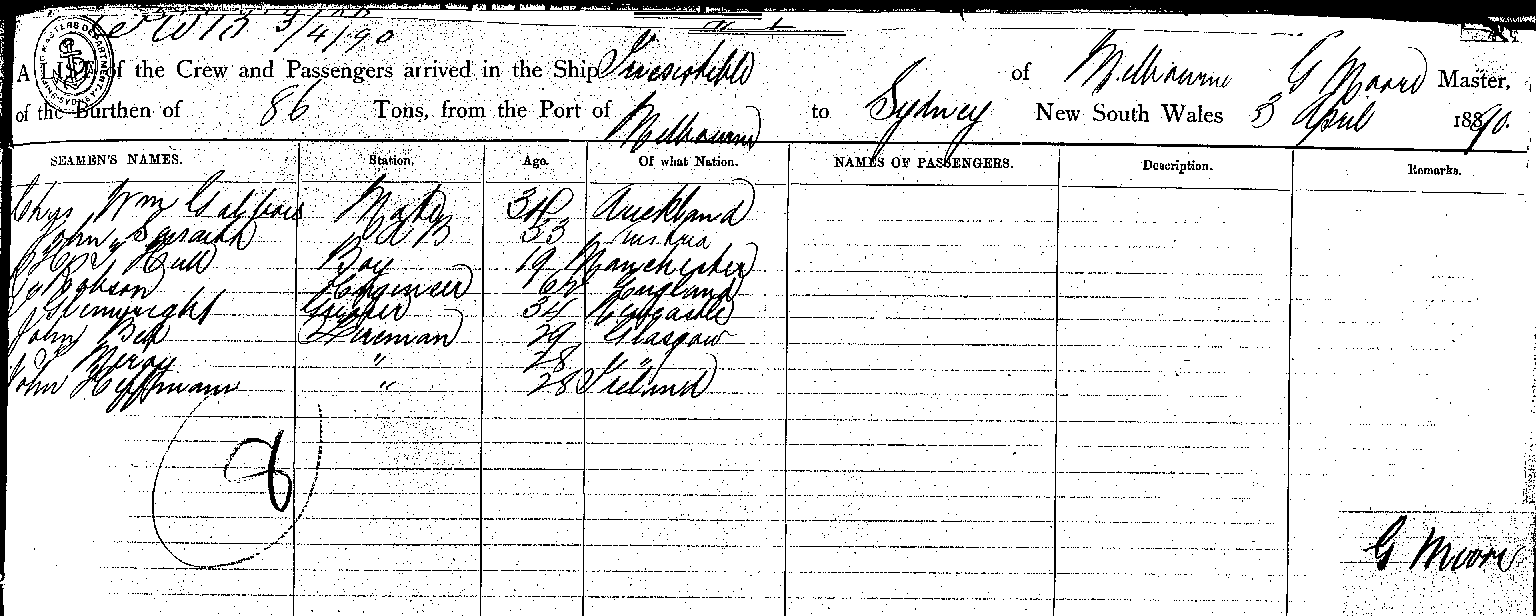 3/4/90
A LIST of the Crew and Passengers arrived in the Ship Irresistible of Melbourne G Moore Master,
of the Burthen of 86 Tons, from the Port of Melbourne to Sydney New South Wales 3 April 1890.
SEAMEN'S NAMES. Station. Age. Of what Nation. NAMES OF PASSENGERS. Description. Remarks.
Chas Wm Mate Auckland
John AB 33 Austria
Hull Boy 19 Manchester
Robson Engineer England
34 Newcastle
John Bell Fireman 29 Glasgow
" 28 "
John Hoffmann " 28 Ireland
8
G Moore